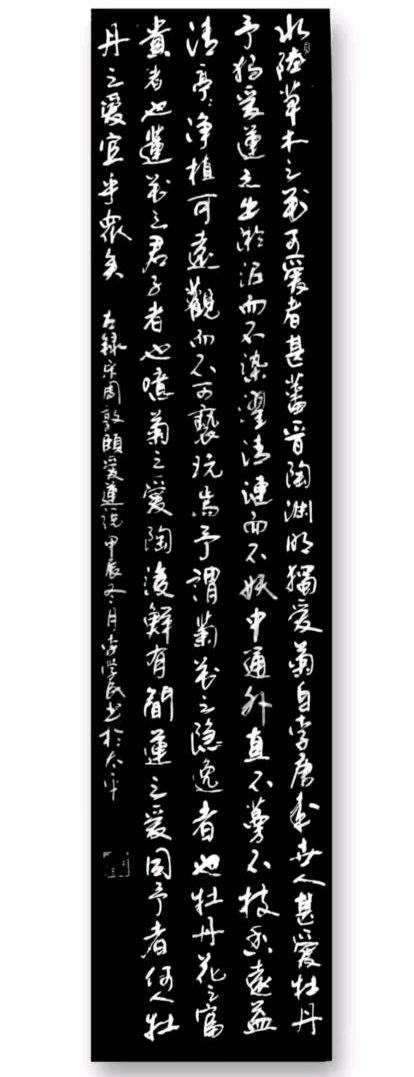 水陸草木之花可愛者甚蕃晉陶渊明獨愛菊自李唐來世人甚愛牡丹
予獨愛蓮之出淤泥而不染濯清漣而不妖中通外直不蔓不枝香遠益
清亭亭净植可遠觀而不可褻玩焉予謂菊花之隐逸者也牡丹花之富
貴者也蓮花之君子者也噫菊之愛陶後鮮有聞蓮之愛同予者何人牡
丹之愛宜乎衆矣 右録宋周敦頤愛蓮説甲辰冬月李民书於太平